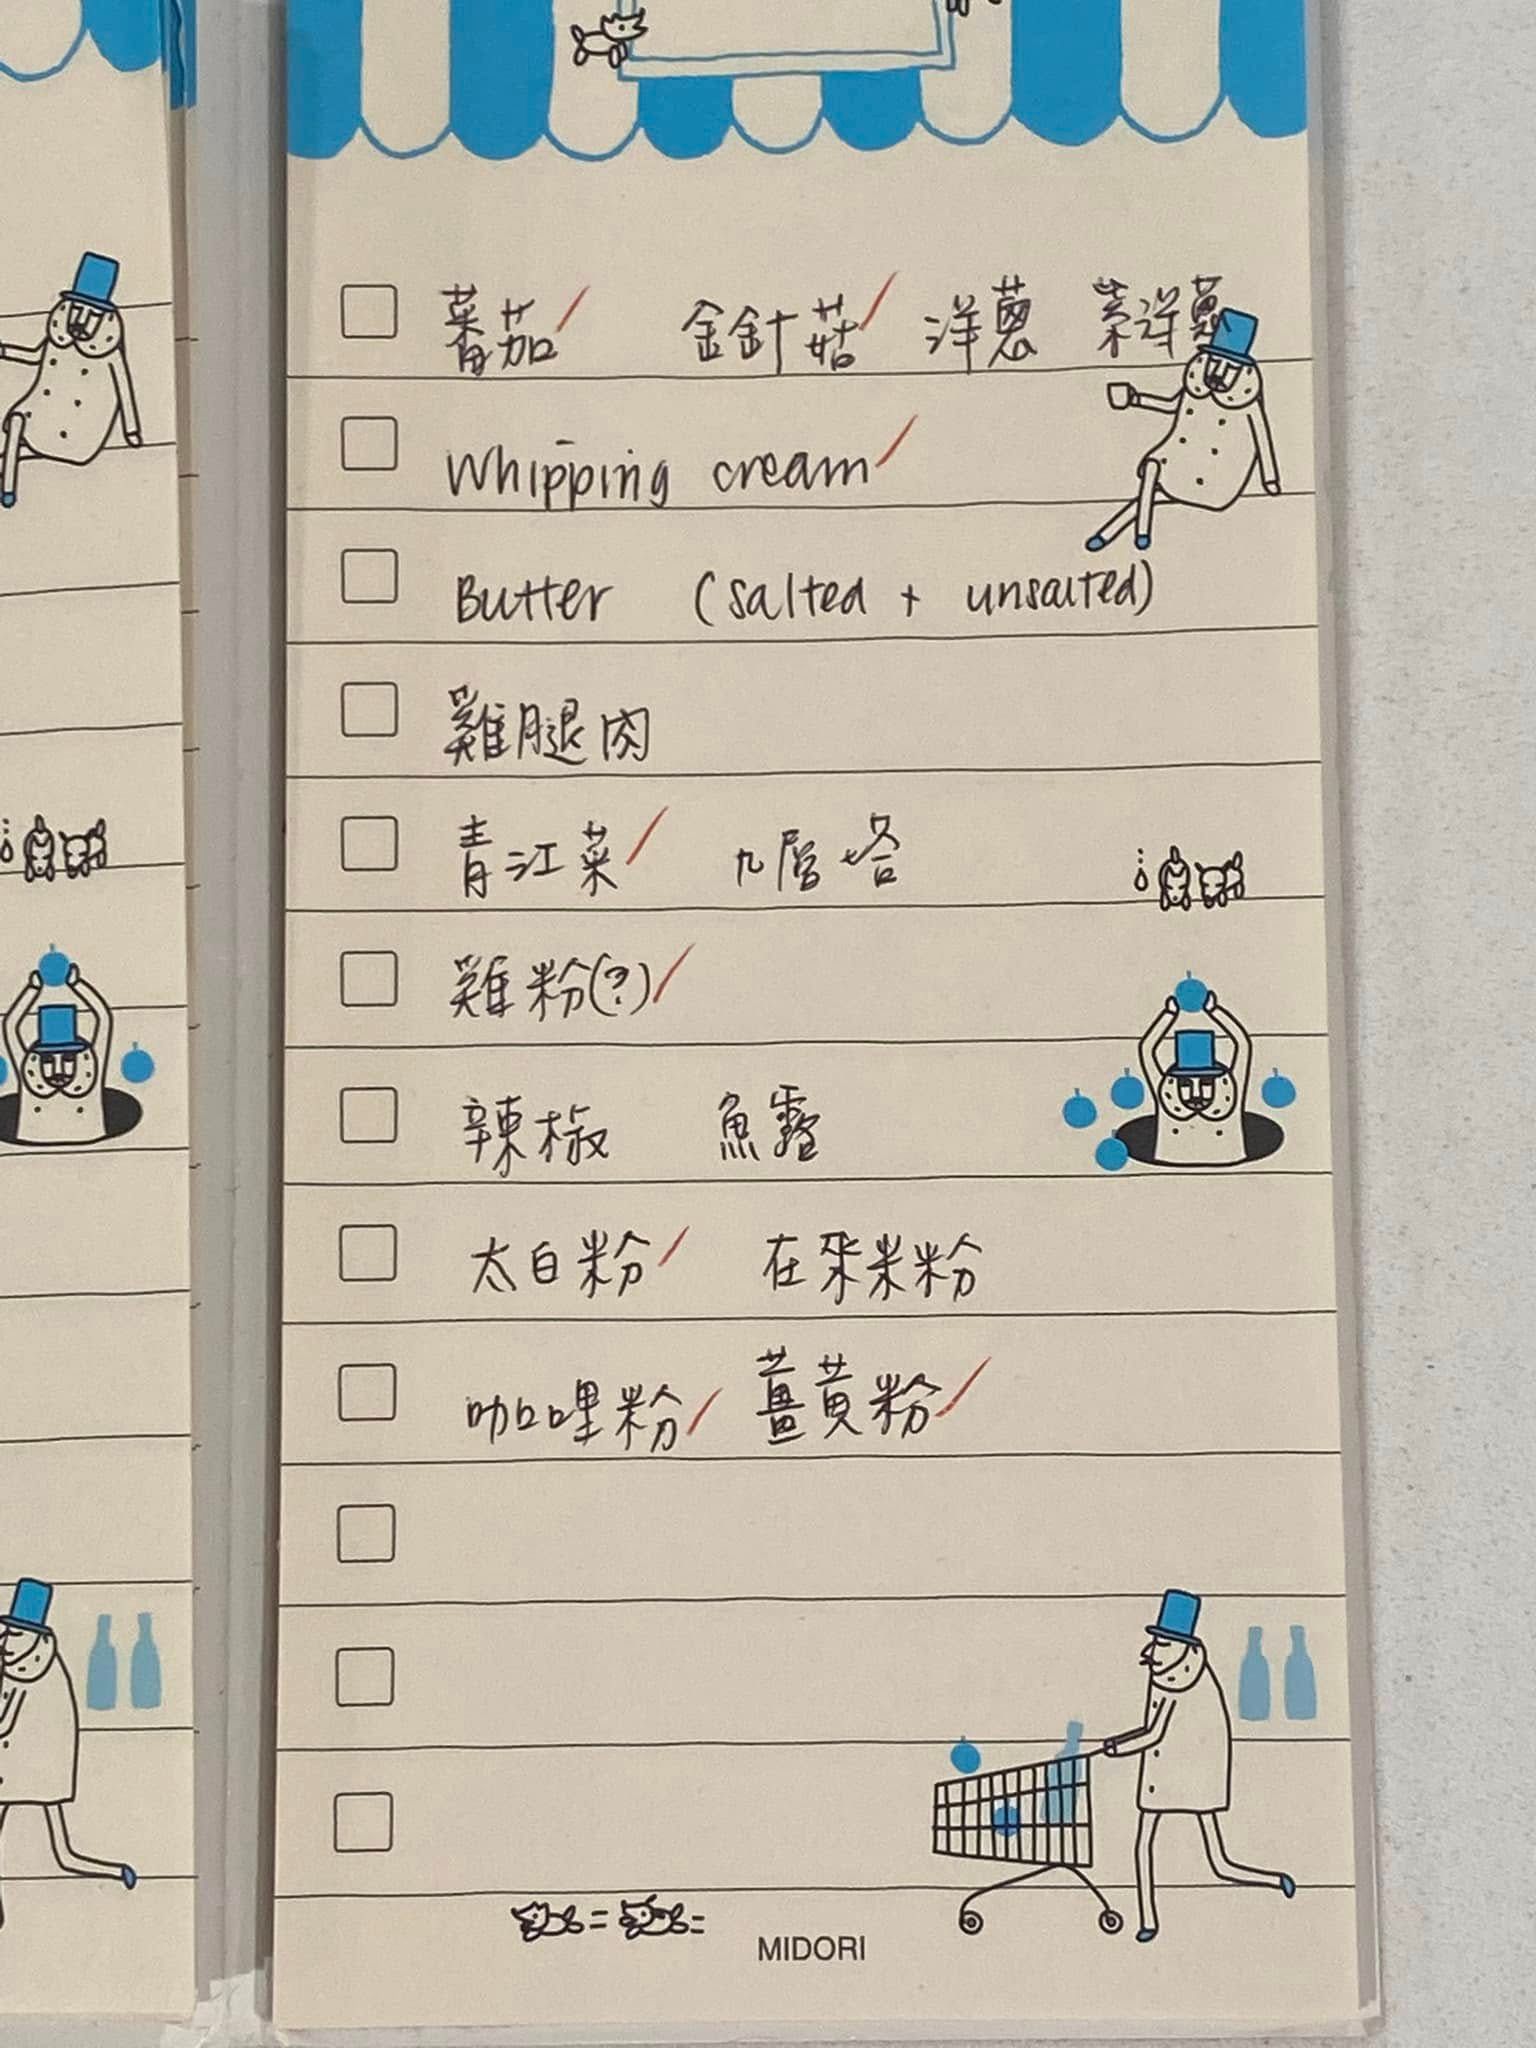 番茄 金針菇 洋蔥 紫洋蔥
Whipping cream
Butter (salted + unsalted)
雞腿肉
青江菜 九層塔
雞粉(?)
辣椒 魚露
太白粉 在來米粉
咖哩粉 薑黃粉
MIDORI